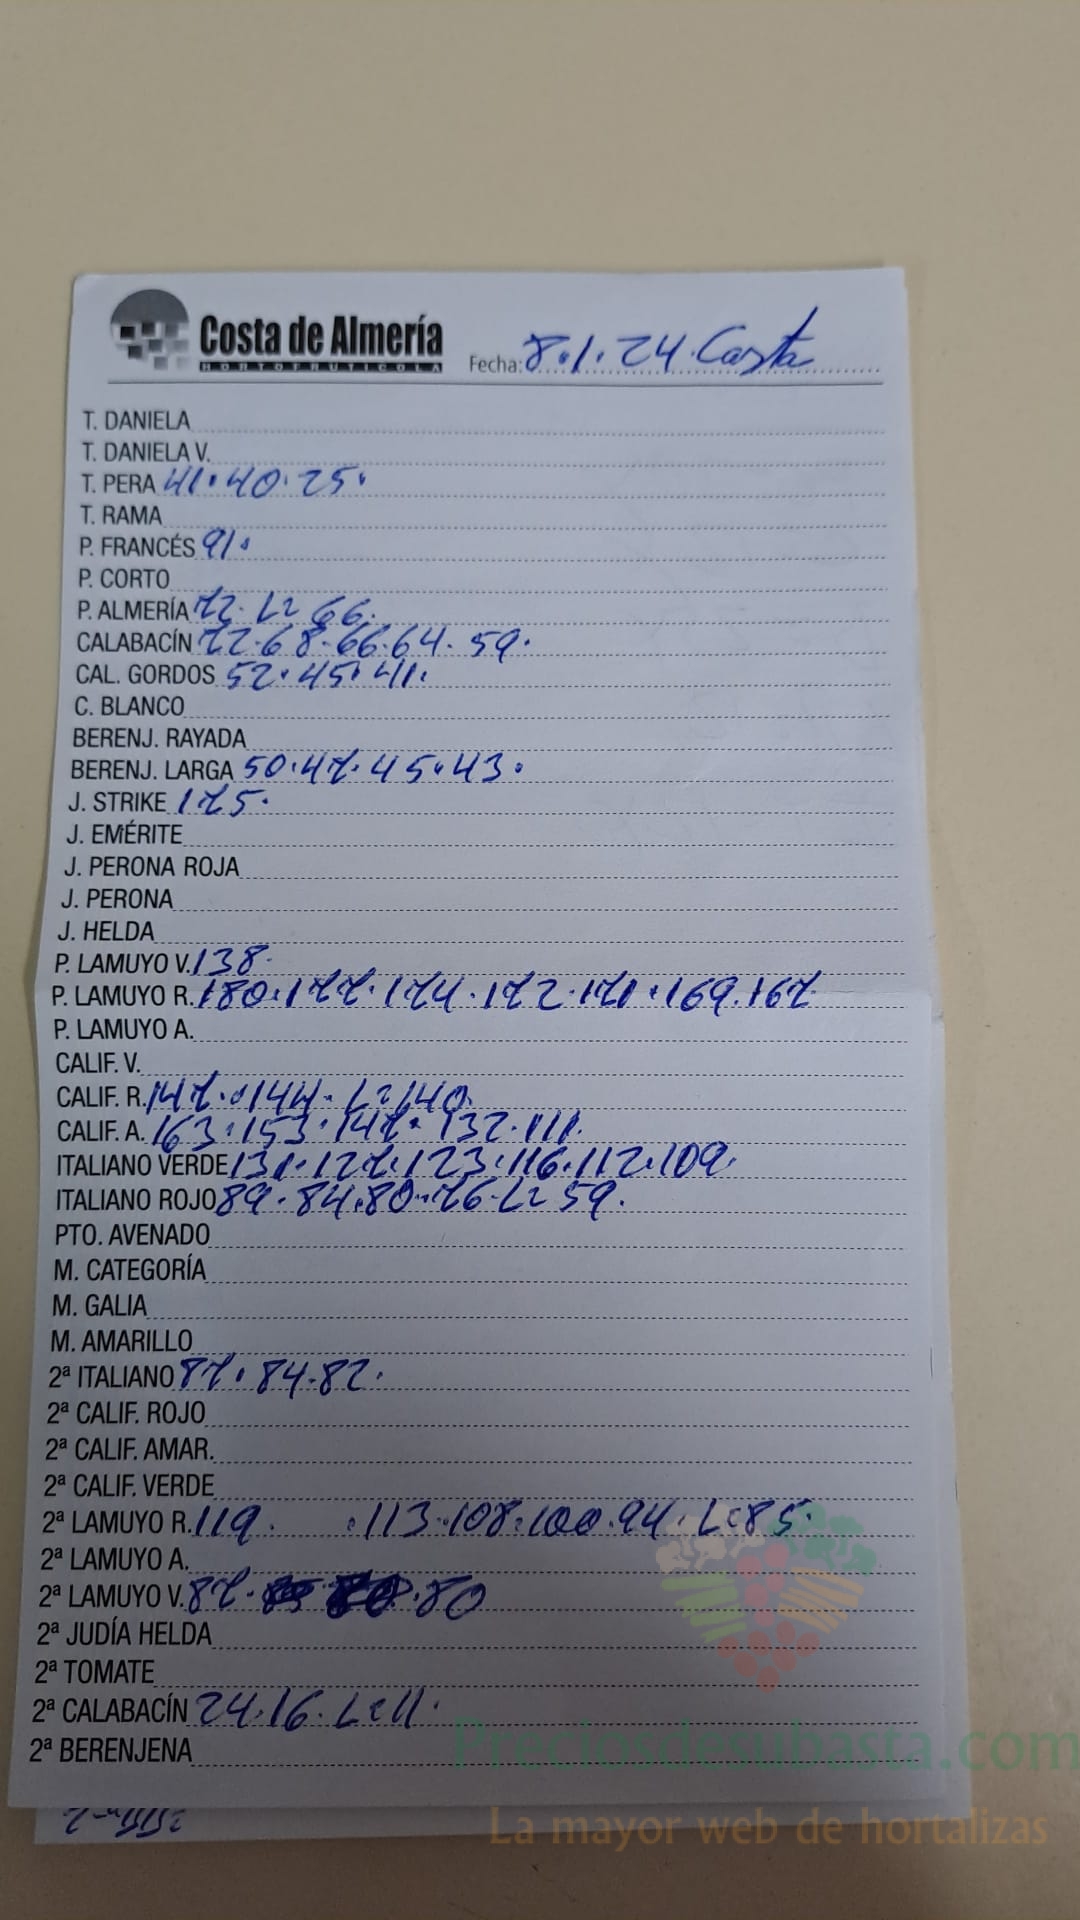 Costa de Almería
HORTOFRUTICOLA
Fecha: 8.1.24. Costa
T. DANIELA
T. DANIELA V.
T. PERA 41.40.25.
T. RAMA
P. FRANCÉS 91.
P. CORTO
P. ALMERÍA 72. L= 66.
CALABACÍN 72.68.66.64.59.
CAL. GORDOS 52.45.41.
C. BLANCO
BERENJ. RAYADA
BERENJ. LARGA 50.47.45.43.
J. STRIKE 175.
J. EMÉRITE
J. PERONA ROJA
J. PERONA
J. HELDA
P. LAMUYO V. 138.
P. LAMUYO R. 180.177.174.172.171.169.167.
P. LAMUYO A.
CALIF. V.
CALIF. R. 147.144. L= 140.
CALIF. A. 163.153.147.132.111.
ITALIANO VERDE 131.127.123.116.112.109.
ITALIANO ROJO 89.84.80.76. L= 59.
PTO. AVENADO
M. CATEGORÍA
M. GALIA
M. AMARILLO
2ª ITALIANO 87.84.82.
2ª CALIF. ROJO
2ª CALIF. AMAR.
2ª CALIF. VERDE
2ª LAMUYO R. 119. .113.108.100.94. L=85.
2ª LAMUYO A.
2ª LAMUYO V. 87. .80
2ª JUDÍA HELDA
2ª TOMATE
2ª CALABACÍN 24.16. L=11.
2ª BERENJENA
Preciosdesubasta.com
La mayor web de hortalizas